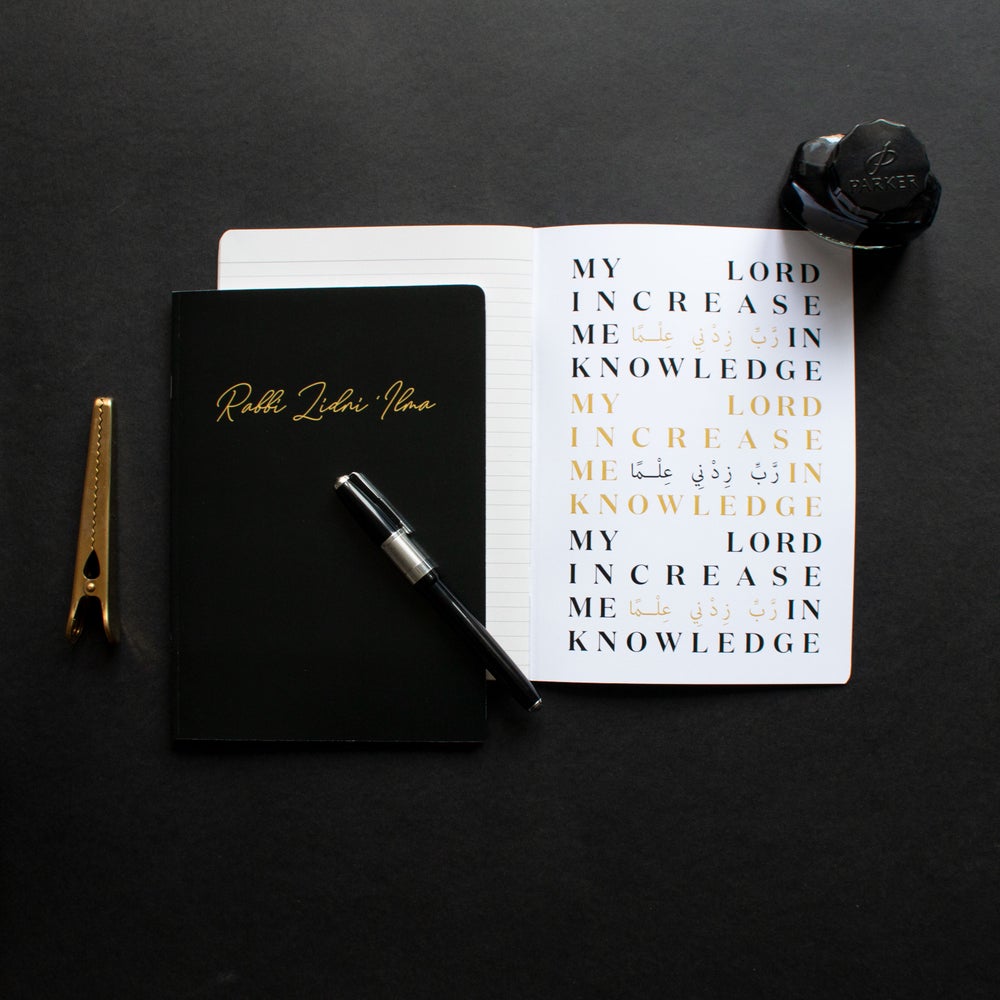 Rabbi Zidni 'Ilma
PARKER
MY LORD
INCREASE
ME رَبِّ زِدْنِي عِلْــمًا IN
KNOWLEDGE
MY LORD
INCREASE
ME رَبِّ زِدْنِي عِلْــمًا IN
KNOWLEDGE
MY LORD
INCREASE
ME رَبِّ زِدْنِي عِلْــمًا IN
KNOWLEDGE